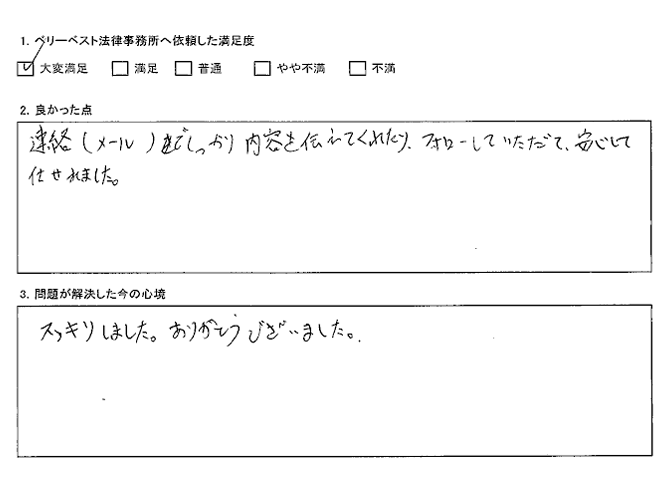 1. ベリーベスト法律事務所へ依頼した満足度
☑ 大変満足 □ 満足 □ 普通 □ やや不満 □ 不満
2. 良かった点
連絡(メール)でしっかり内容を伝えてくれたり、フォローしていただて、安心して
任せれました。
3. 問題が解決した今の心境
スッキリしました。ありがとうございました。